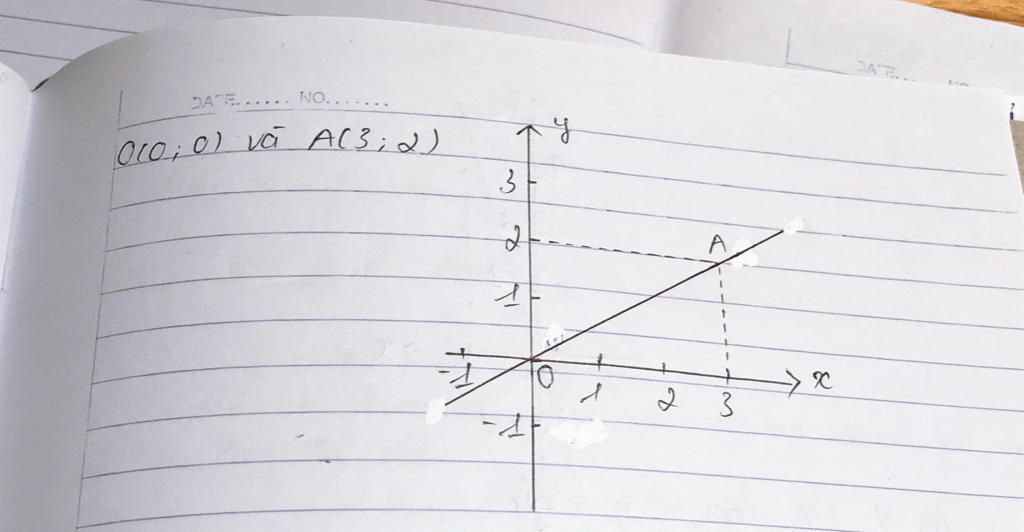 DATE...... NO.......
O(0; 0) và A(3; 2)
y
3
2 A
1
-1 O 1 2 3 x
-1
DATE.... NO